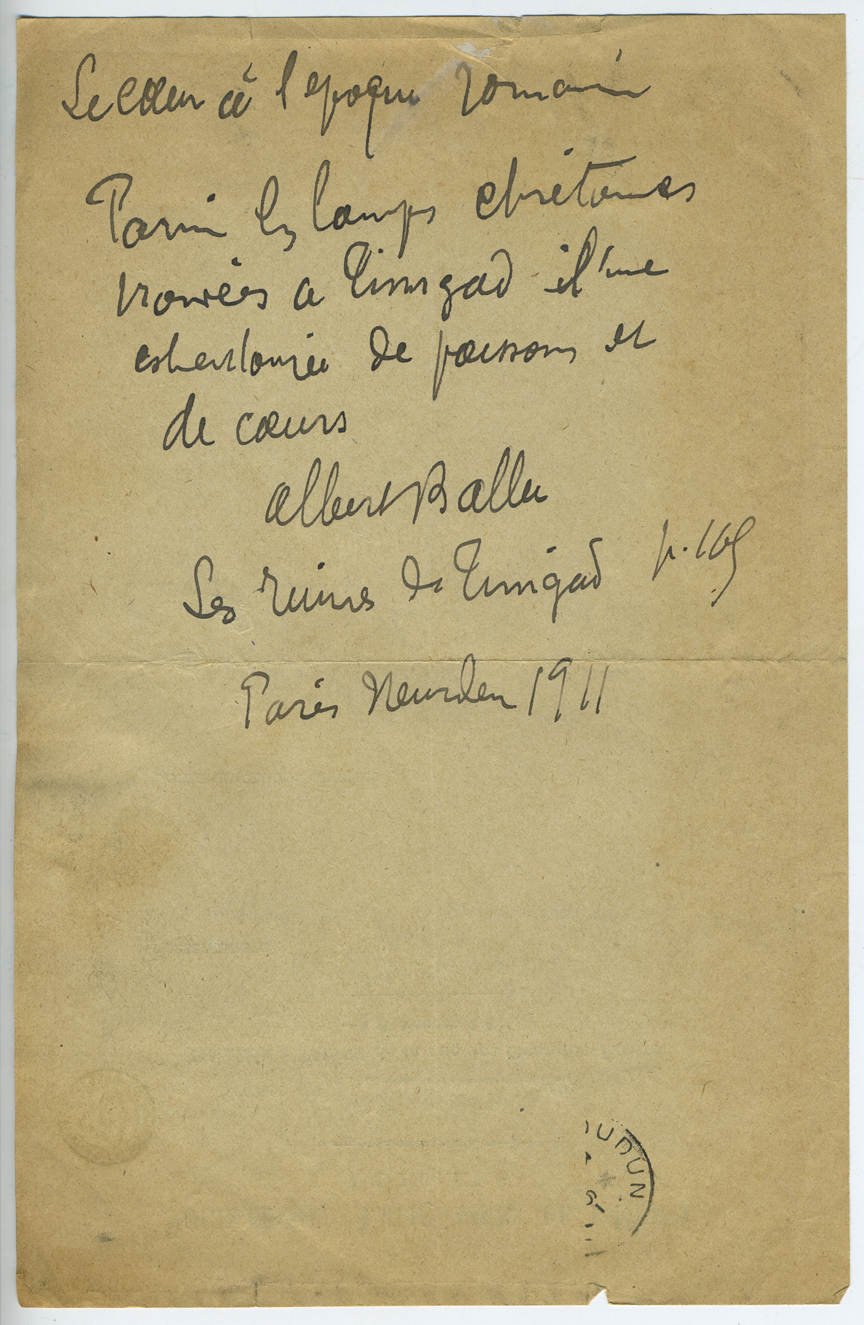 Le cœur à l'epoque romain
Parmi les lamps chrétiennes
trouvées a Timgad il'une
est entourée de poissons et
de cœurs
Albert Ballu
Les ruines de Timgad p. 169
Paris Neurdein 1911
UDUN